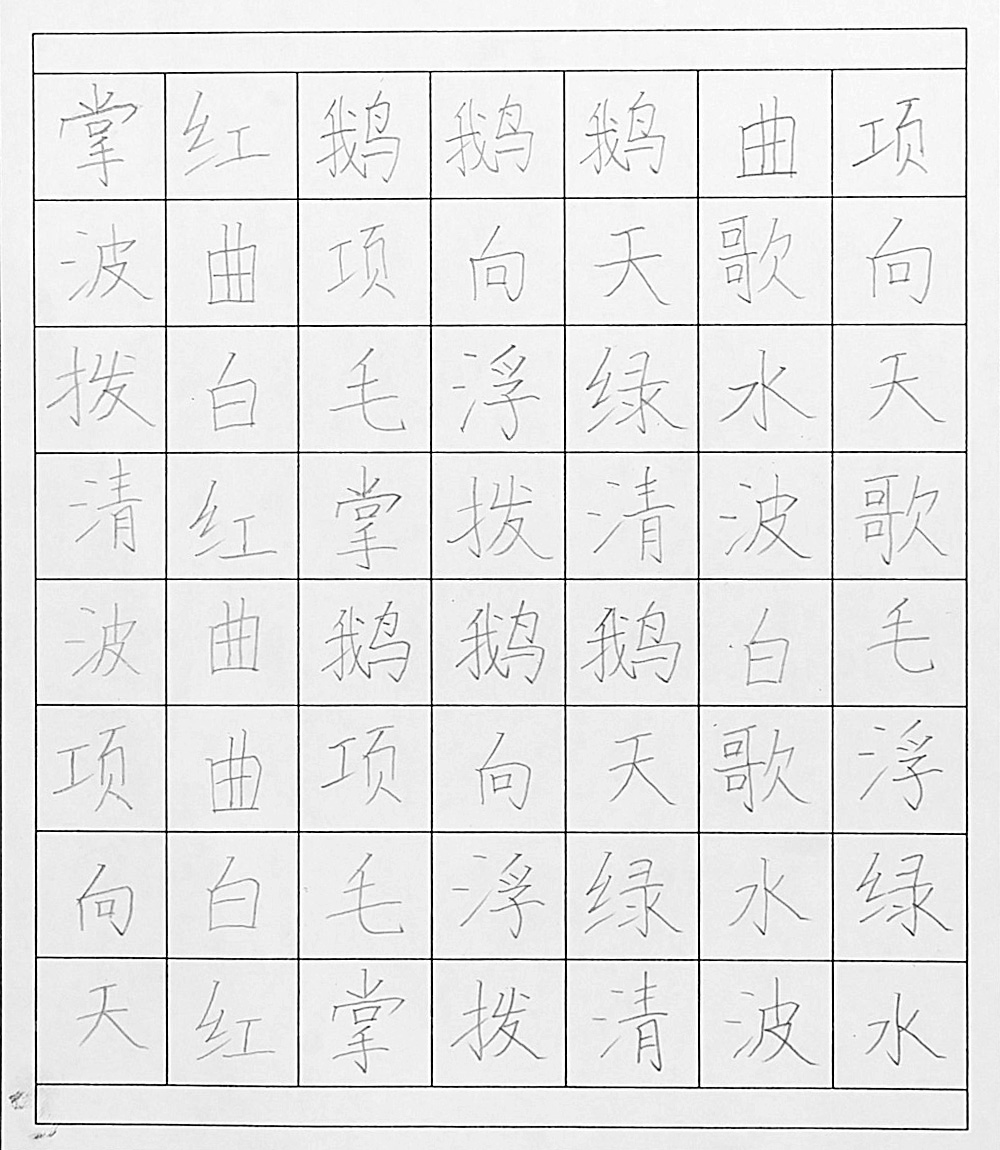 掌红鹅鹅鹅曲项
波曲项向天歌向
拨白毛浮绿水天
清红掌拨清波歌
波曲鹅鹅鹅白毛
项曲项向天歌浮
向白毛浮绿水绿
天红掌拨清波水